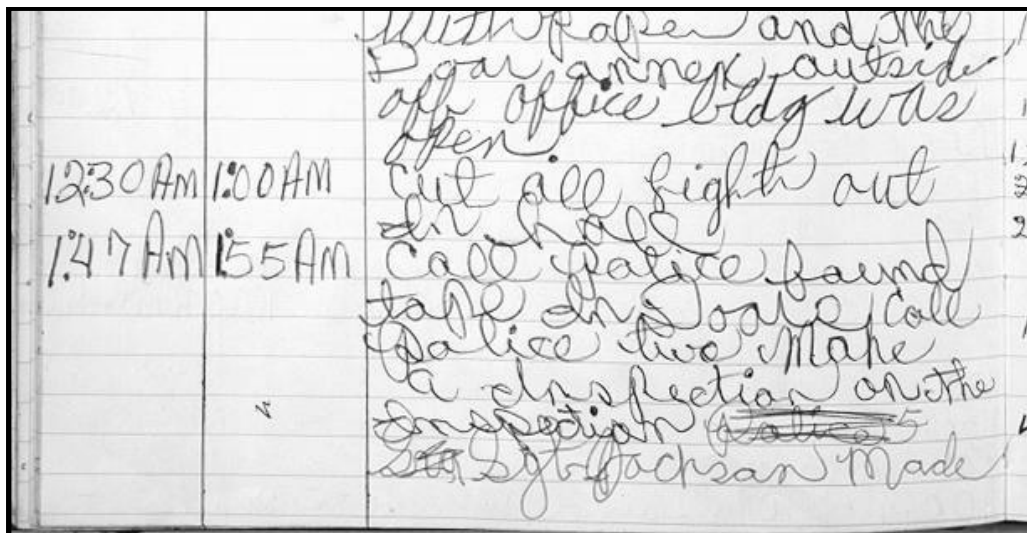 with paper and the
Door annex outside
off office bldg was
open
12:30 AM 1:00 AM cut all light out
In hall
1:47 AM 1:55 AM call police found
tape In Doore Call
police two Make
a Inspection on the
Inspection police 5
Sgt Jackson Made